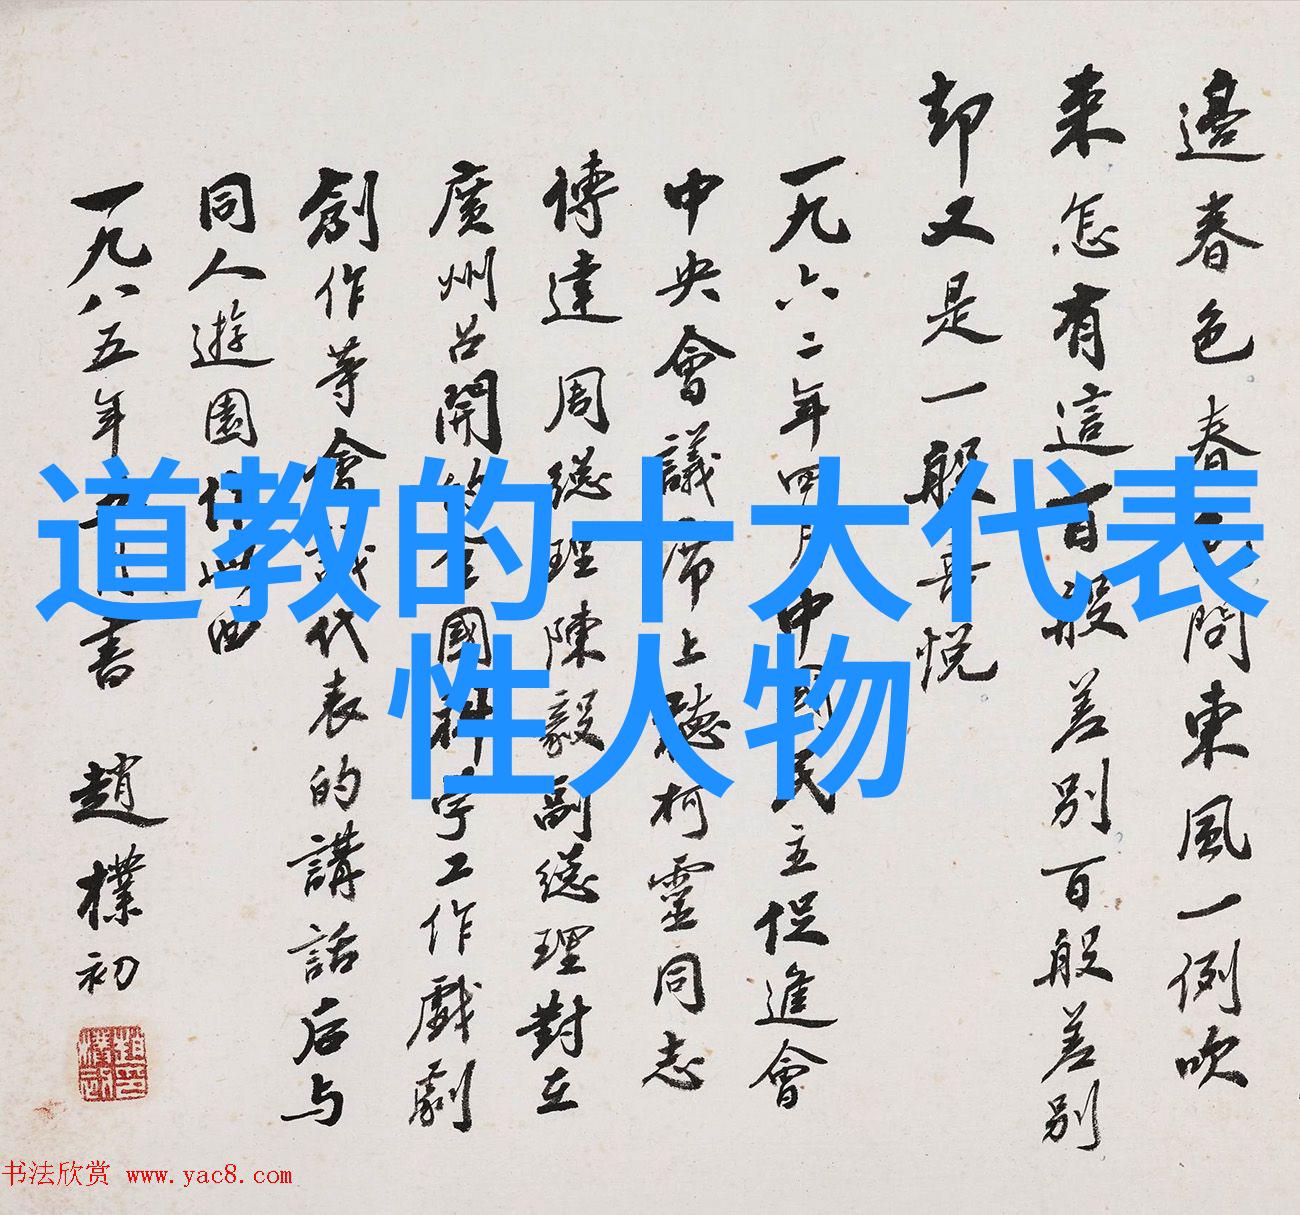 道教的十大代表
性人物
邊春色春色問東風一例吹
来怎有這百般差別百般差別
却又是一般喜悦
一九六二年四月中國民主促進會
中央會議席上聽柯靈同志
傳達周總理陳毅副總理對在
廣州召開的全國科学工作戲劇
創作等會議代表的講話后与
同人遊園作此曲
一九八五年
書 趙樸初
书法欣赏 www.yac8.com